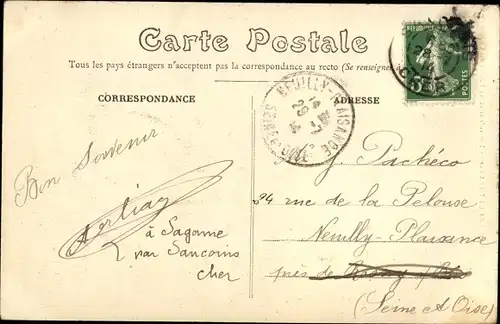 Carte Postale
Tous les pays étrangers n'acceptent pas la correspondance au recto (Se renseigner
CORRESPONDANCE
ADRESSE
NEUILLY-PLAISANCE
POSTES
Bon Souvenir
à Sagonne
par Sancoins
Cher
J. Pachéco
34 rue de la Pelouse
Neuilly-Plaisance
près de
(Seine et Oise)